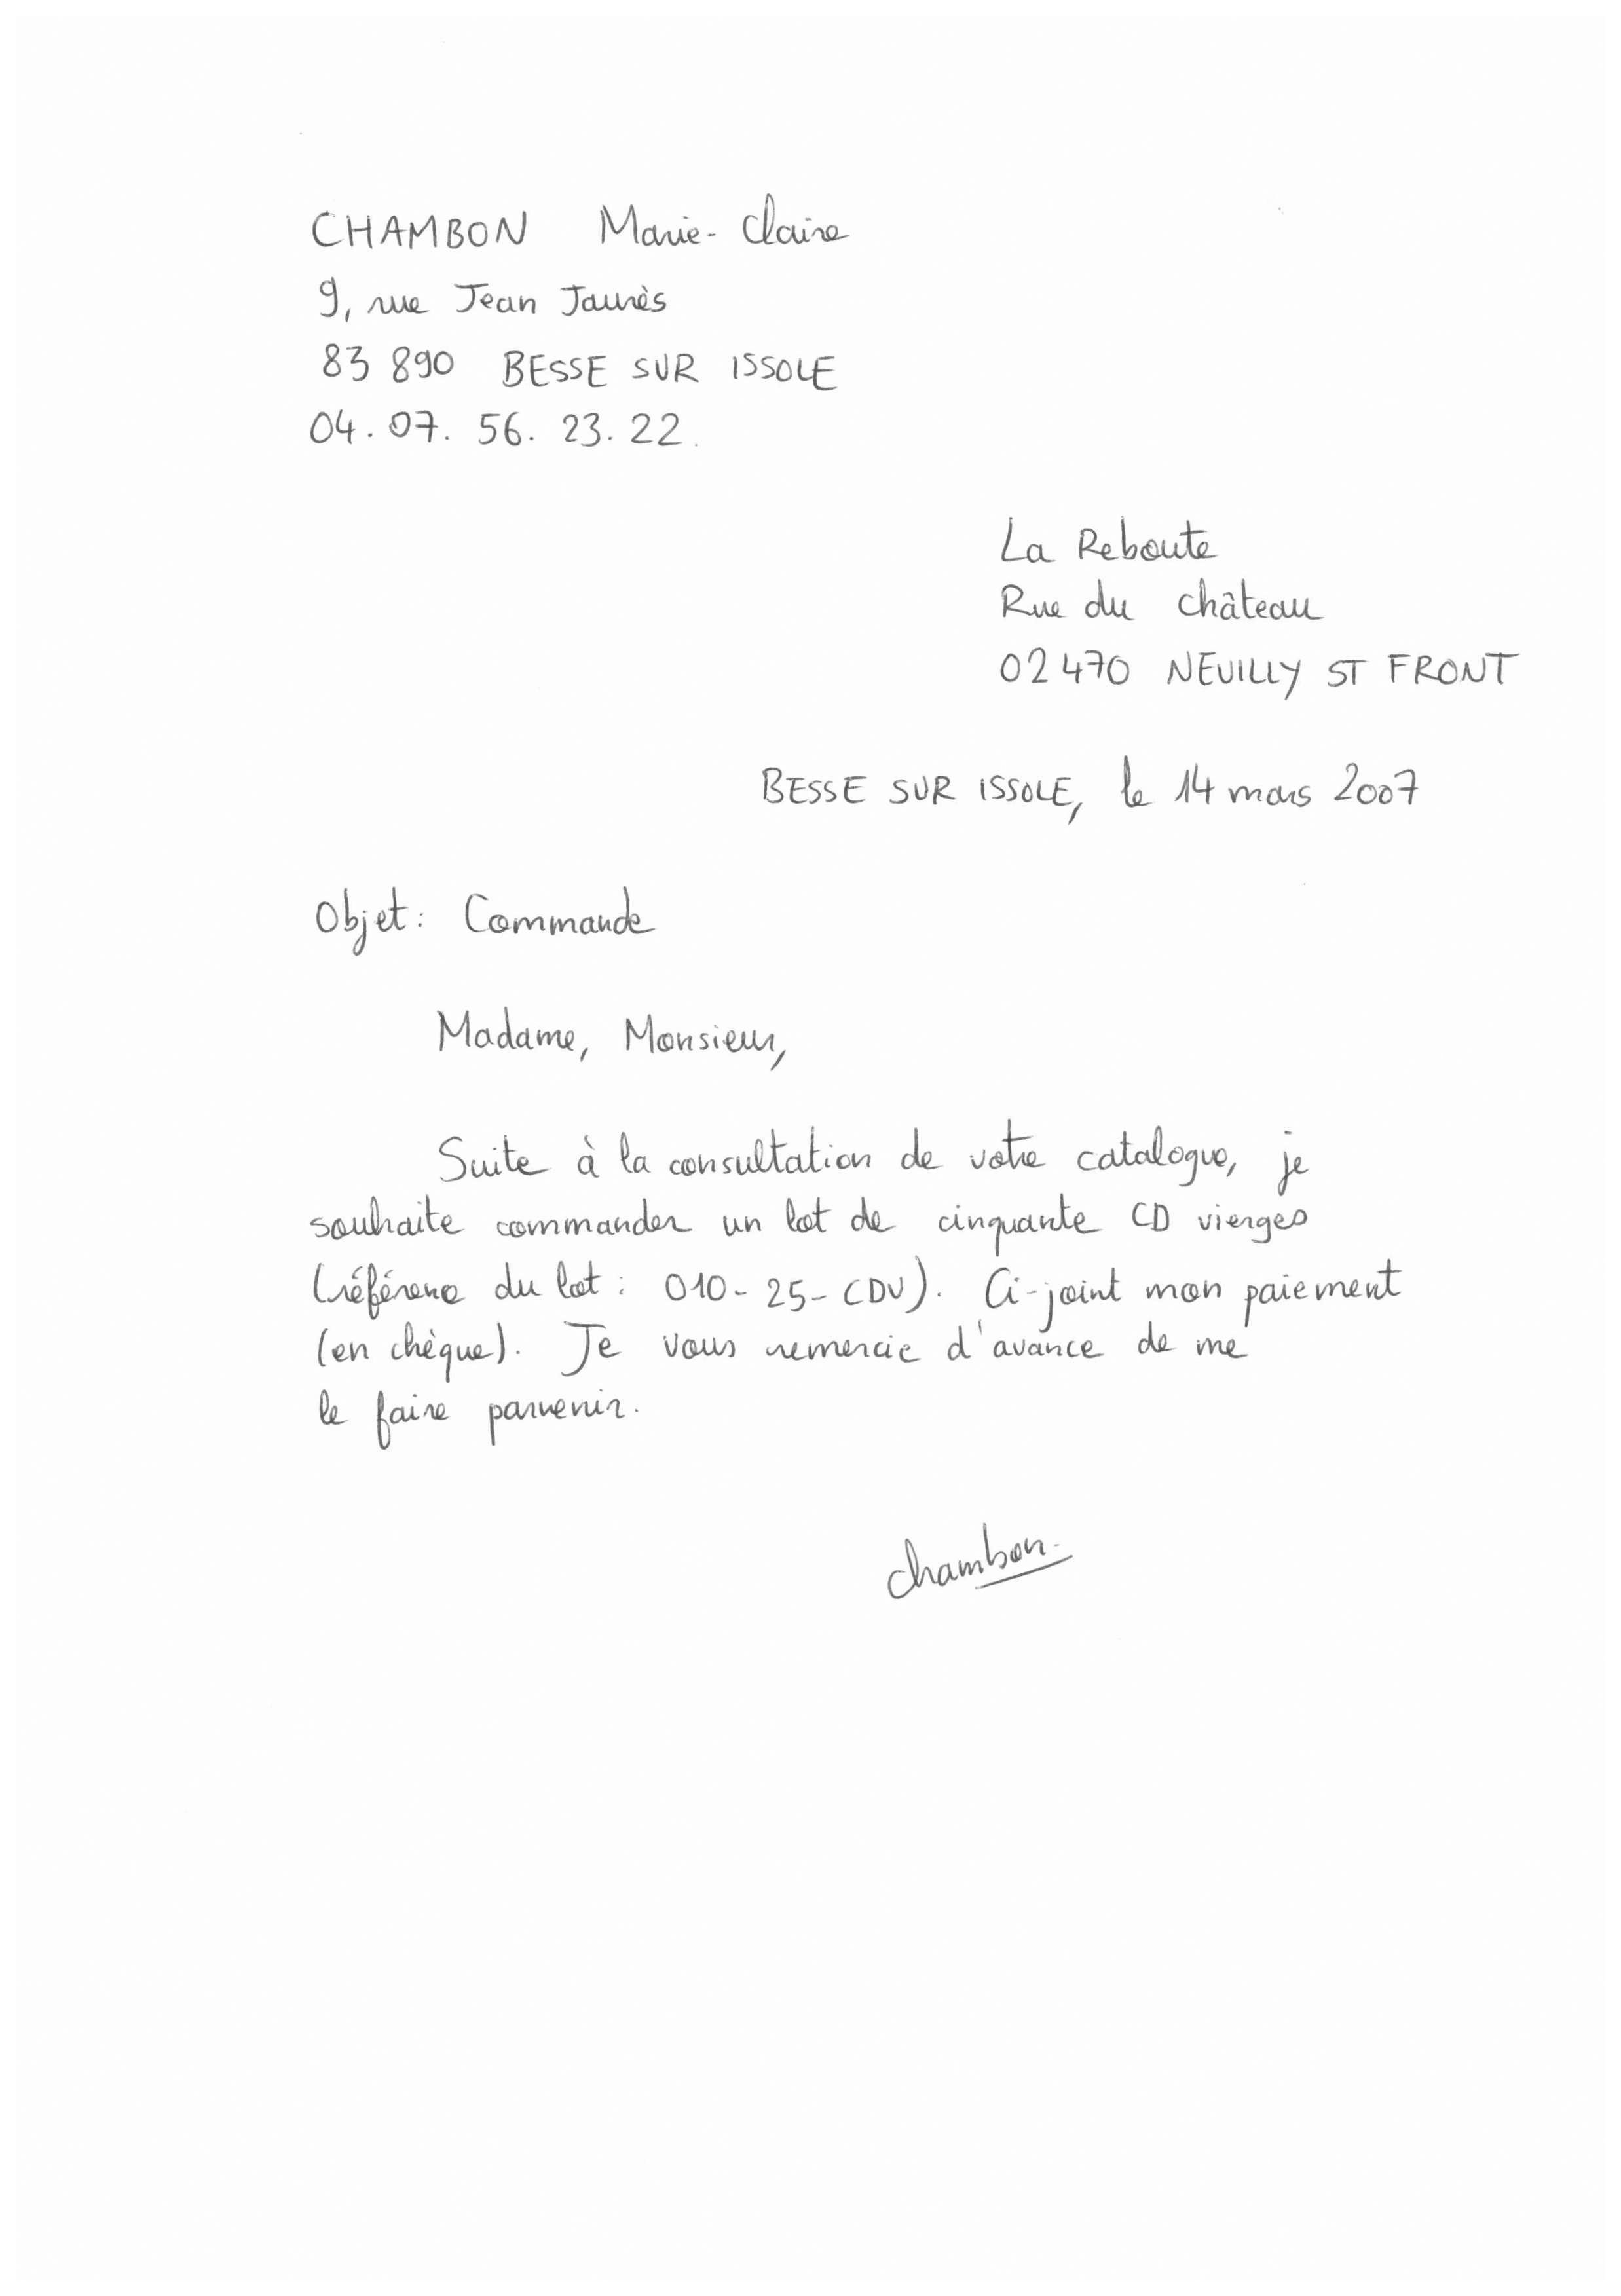 CHAMBON Marie-Claire
9, rue Jean Jaurès
83 890 BESSE SUR ISSOLE
04. 07. 56. 23. 22.
La Reboute
Rue du château
02 470 NEUILLY ST FRONT
BESSE SUR ISSOLE, le 14 mars 2007
Objet: Commande
Madame, Monsieur,
Suite à la consultation de votre catalogue, je
souhaite commander un lot de cinquante CD vierges
(référence du lot : 010-25-CDV). Ci-joint mon paiement
(en chèque). Je vous remercie d'avance de me
le faire parvenir.
Chambon.